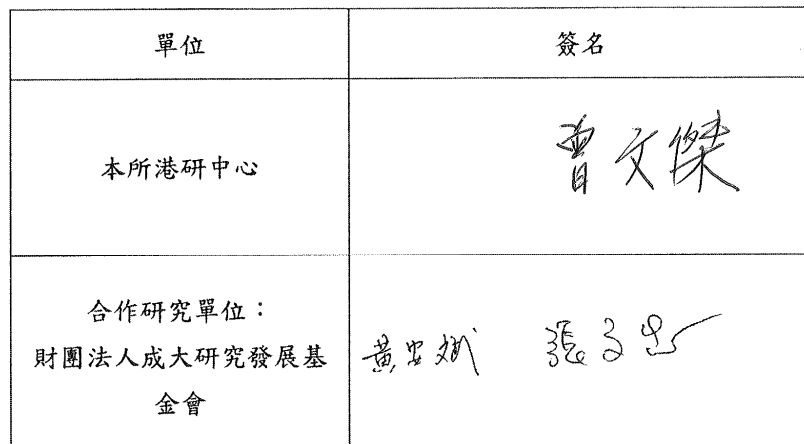 單位
簽名
本所港研中心
曾文傑
合作研究單位：
財團法人成大研究發展基
金會
黃安斌